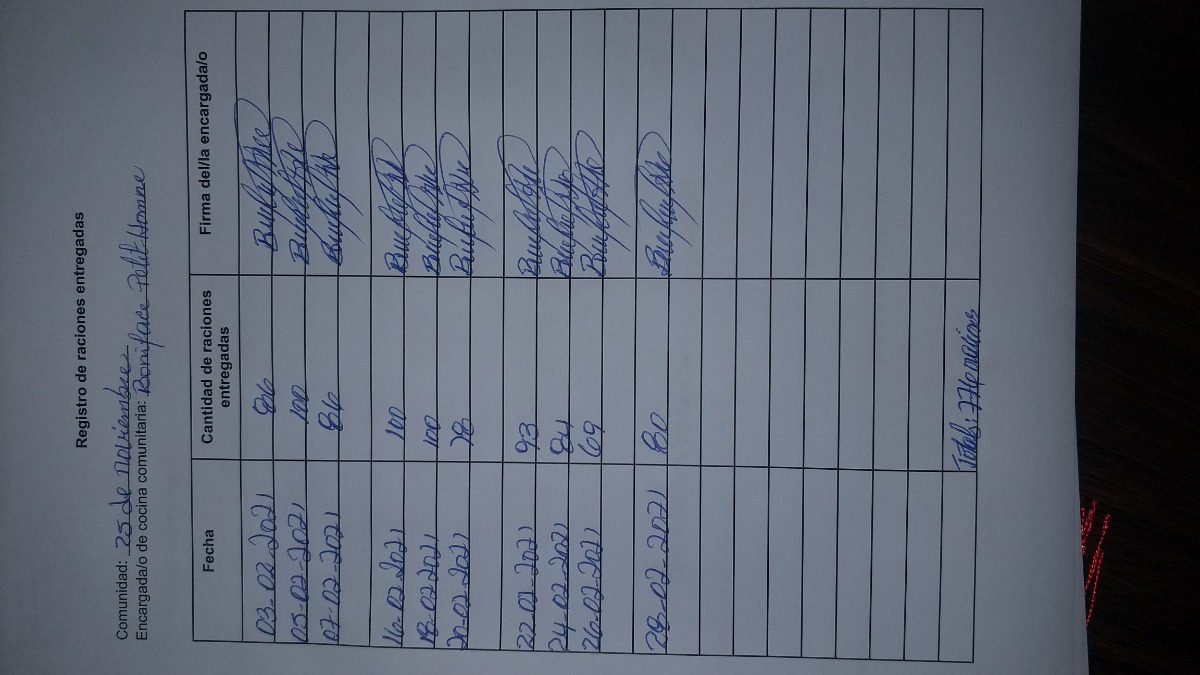 Registro de raciones entregadas
Comunidad: 25 de Noviembre
Encargada/o de cocina comunitaria: Boniface Petit Homme
Fecha Cantidad de raciones entregadas Firma del/la encargada/o
03-02-2021 86
05-02-2021 100
07-02-2021 86
16-02-2021 100
18-02-2021 100
20-02-2021 78
22-02-2021 93
24-02-2021 84
26-02-2021 69
28-02-2021 80
Total: 776 raciones